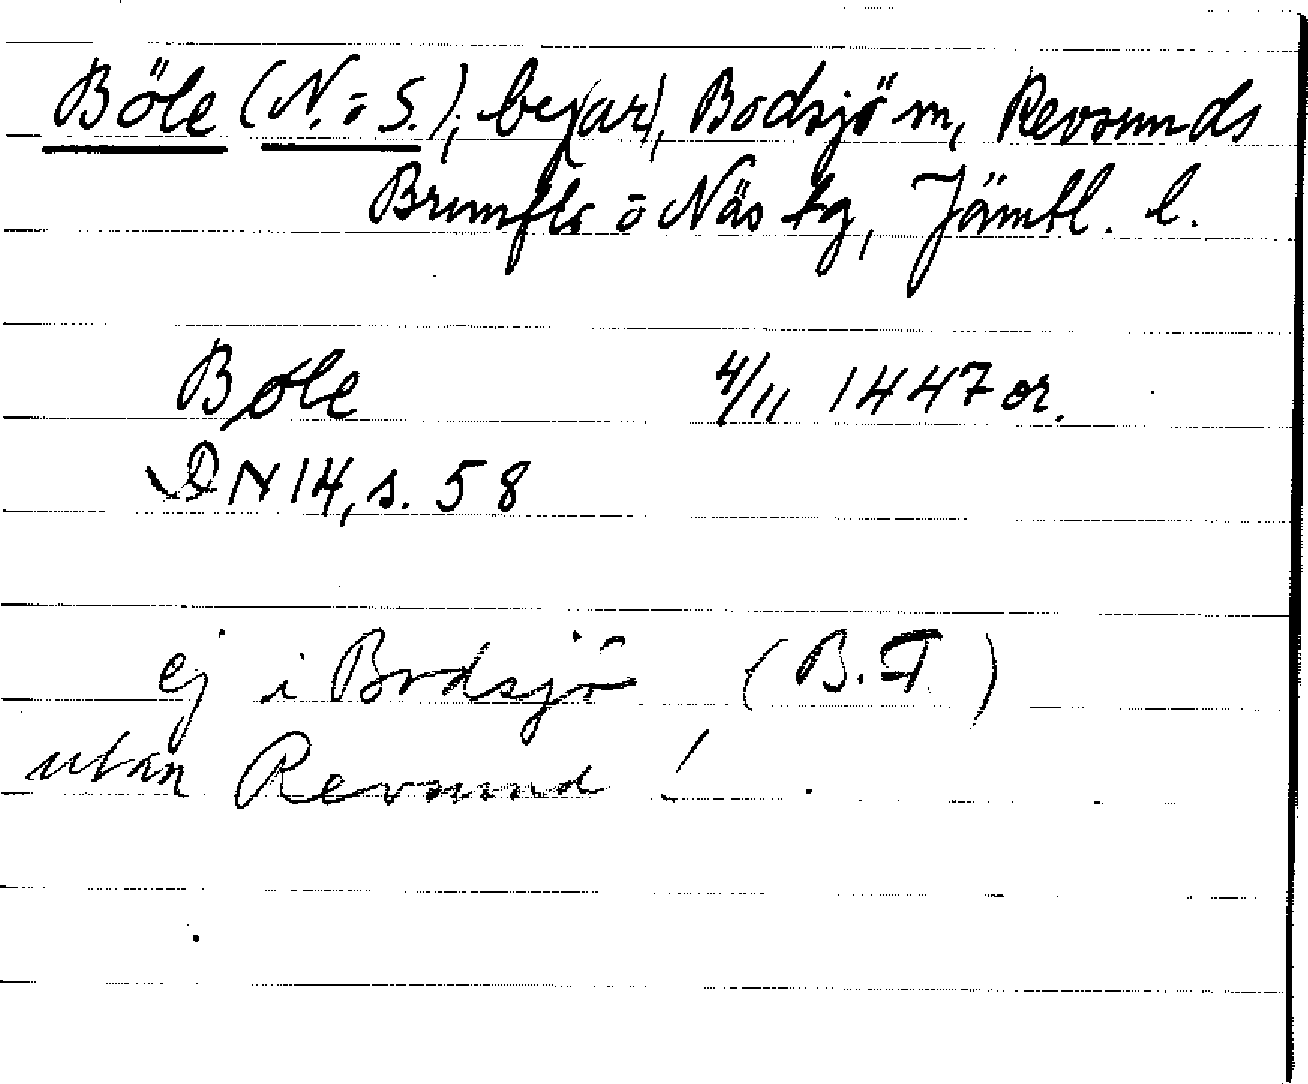 Böle (N. o S.), by(ar), Bodsjö sn, Revsunds
Brunflo o Näs tg, Jämtl. l.
Bøle 4/11 1447 or.
DN 14, s. 58
ej i Bodsjö (B.F)
utan Revsund!